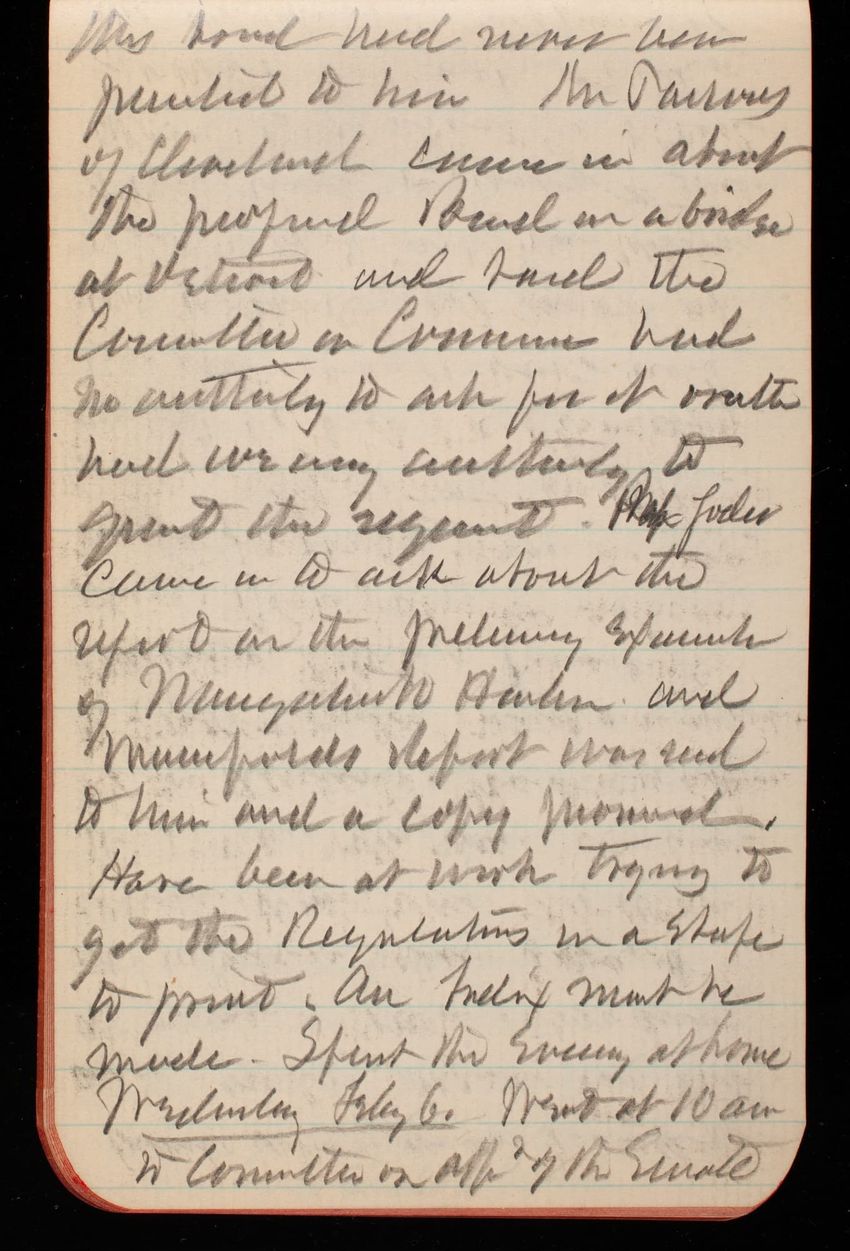 this had never been
presented to him Mr Parsons
of Cleveland came in about
the proposed Board on a bridge
at Detroit and said the
Committee on Commerce had
no authority to ask for it
had we any authority to
grant the request.
came in to ask about the
report on the preliminary Examin
of Naugatuck Harbor and
report was read
to him and a copy promised.
Have been at work trying to
get the Regulations in a Shape
to print. An Index must be
made. Spent the Evening at home
Wednesday Feby 6. Went at 10 am
to Committee on of the Senate